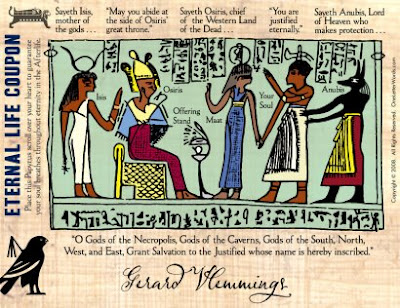 ETERNAL LIFE COUPON
Place this Papyrus scroll over your heart to guarantee
your soul breathes throughout eternity in the Afterlife.
Sayeth Isis,
mother of
the gods . . .
"May you abide at
the side of Osiris'
great throne."
Sayeth Osiris, chief
of the Western Land
of the Dead . . .
"You are
justified
eternally."
Sayeth Anubis, Lord
of Heaven who
makes protection . . .
Isis
Osiris
Offering
Stand
Maat
Your
Soul
Anubis
"O Gods of the Necropolis, Gods of the Caverns, Gods of the South, North,
West, and East, Grant Salvation to the Justified whose name is hereby inscribed."
Gerard Hemmings
Copyright © 2008. All Rights Reserved.